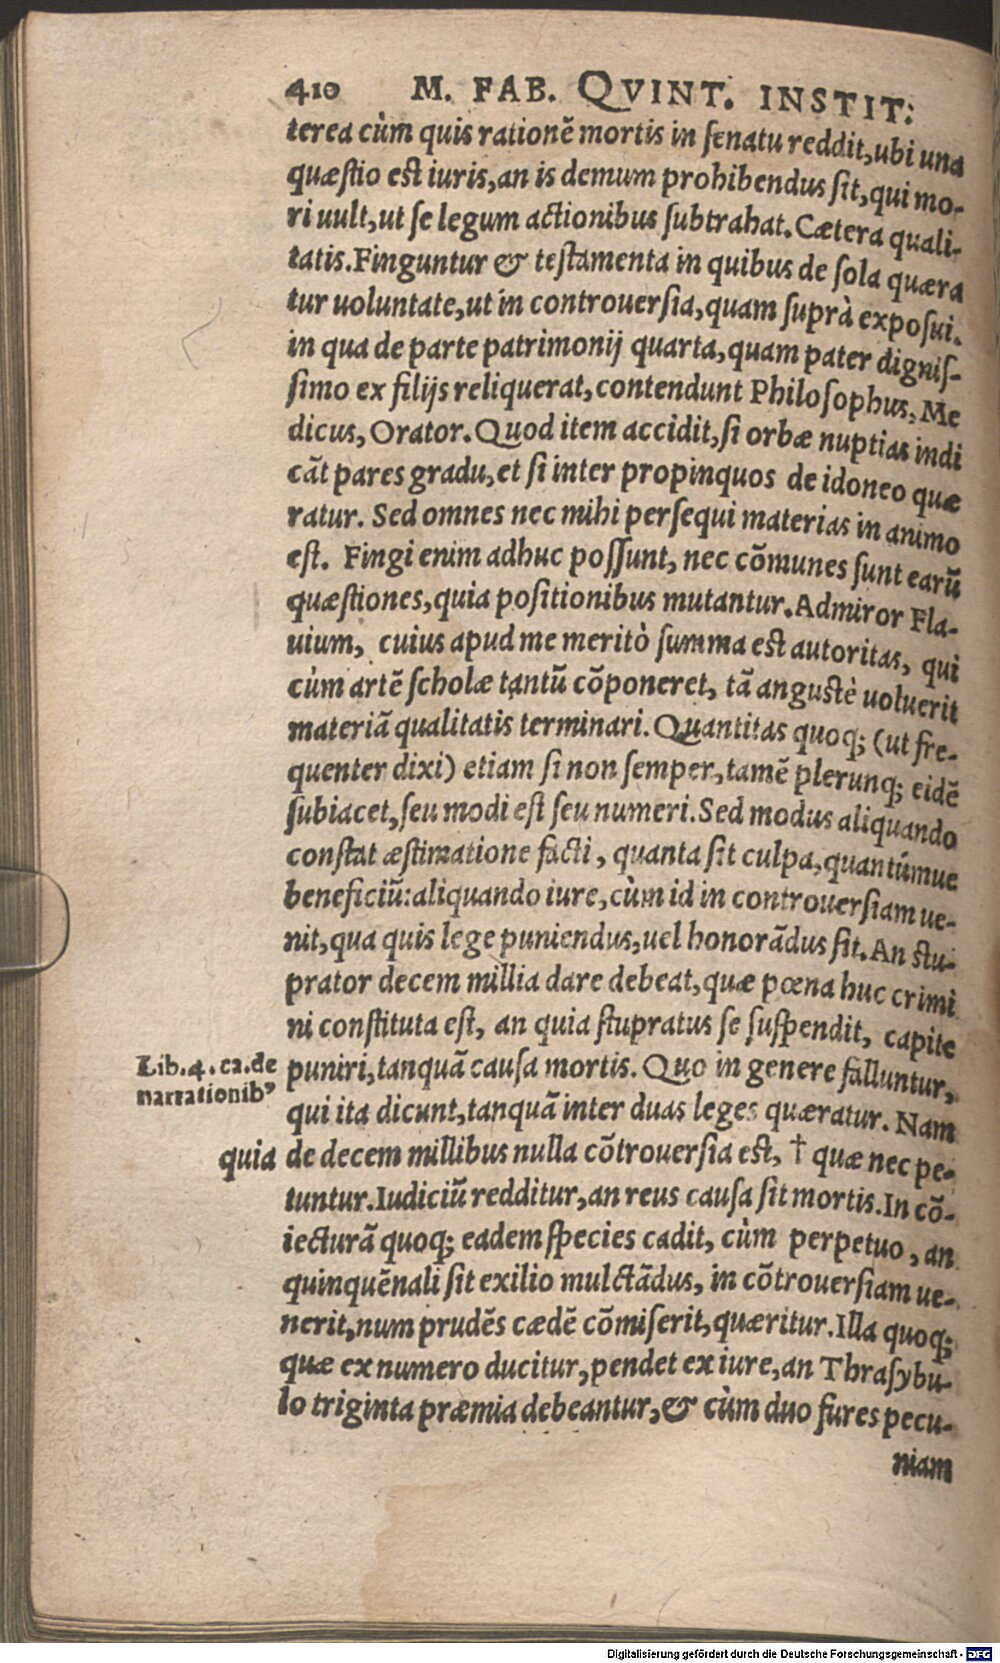 410 M. FAB. QVINT. INSTIT:
terea cùm quis rationē mortis in senatu reddit, ubi una
quæstio est iuris, an is demum prohibendus sit, qui mo-
ri uult, ut se legum actionibus subtrahat. Cætera quali-
tatis. Finguntur & testamenta in quibus de sola quæra
tur uoluntate, ut in controuersia, quam suprà exposui.
in qua de parte patrimonij quarta, quam pater dignis-
simo ex filijs reliquerat, contendunt Philosophus, Me
dicus, Orator. Quod item accidit, si orbæ nuptias indi
cāt pares gradu, et si inter propinquos de idoneo quæ
ratur. Sed omnes nec mihi persequi materias in animo
est. Fingi enim adhuc possunt, nec cōmunes sunt earū
quæstiones, quia positionibus mutantur. Admiror Fla-
uium, cuius apud me meritò summa est autoritas, qui
cùm artē scholæ tantū cōponeret, tā angustè uoluerit
materiā qualitatis terminari. Quantitas quoq; (ut fre-
quenter dixi) etiam si non semper, tamē plerunq; eidē
subiacet, seu modi est seu numeri. Sed modus aliquando
constat æstimatione facti, quanta sit culpa, quantúmue
beneficiū: aliquando iure, cùm id in controuersiam ue-
nit, qua quis lege puniendus, uel honorādus sit. An stu-
prator decem millia dare debeat, quæ pœna huc crimi
ni constituta est, an quia stupratus se suspendit, capite
Lib. 4. ca. de
narrationib⁹
puniri, tanquā causa mortis. Quo in genere falluntur,
qui ita dicunt, tanquā inter duas leges quæratur. Nam
quia
de decem millibus nulla cōtrouersia est, † quæ nec pe-
tuntur. Iudiciū redditur, an reus causa sit mortis. In cō-
iecturā quoq; eadem species cadit, cùm perpetuo, an
quinquēnali sit exilio mulctādus, in cōtrouersiam ue-
nerit, num prudēs cædē cōmiserit, quæritur. Illa quoq;
quæ ex numero ducitur, pendet ex iure, an Thrasybu-
lo triginta præmia debeantur, & cùm duo fures pecu-
niam
Digitalisierung gefördert durch die Deutsche Forschungsgemeinschaft - DFG